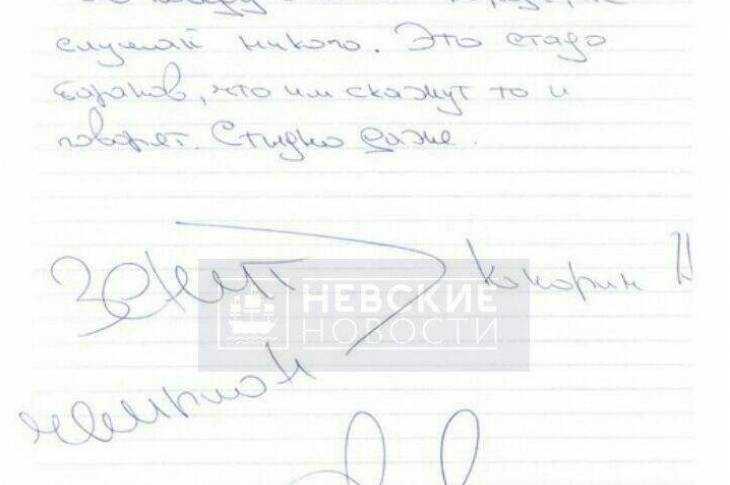 слушай никого. Это стадо
баранов, что им скажут то и
говорят. Стыдно даже.
Зенит
Кокорин А
НЕВСКИЕ
НОВОСТИ
чемпион